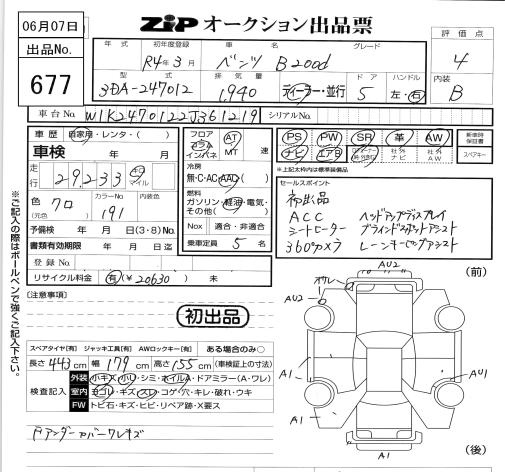 06月07日
ZIP オークション出品票
出品No. 677
評価点 4
内装 B
年式 初年度登録 車名 グレード
R4年3月 ベンツ B200d
型式 排気量 ドア ハンドル
3DA-247012 1,940 ディーラー・並行 5 左・右
車台No. W1K2470122J361219 シリアルNo.
車歴 自家用・レンタ・( )
車検 年 月
走行 29,233 キロ マイル
色 クロ
(元色)
カラーNo. 191
予備検 年 月(3・8)No.
書類有効期限 年 月 日迄
登録No.
リサイクル料金 有(¥20630) 未
フロア AT
コラム
インパネ MT 速
冷房
無・C・AC・AAC( )
燃料
ガソリン・軽油・電気・その他( )
Nox 適合・非適合
乗車定員 5 名
PS PW SR 革 AW
ナビ エアB 社外ナビ 社外AW
新車時保証書
スペアキー
※上記太枠内は標準装備品
セールスポイント
初出品
ACC ヘッドアップディスプレイ
シートヒーター ブラインドスポットアシスト
360°カメラ レーンキーピングアシスト
[注意事項]
初出品
スペアタイヤ[有] ジャッキ工具[有] AWロックキー[有] ある場合のみ○
長さ 443 cm 幅 179 cm 高さ 155 cm (車検証上の寸法)
検査記入
外装 小キズ・小U・シミ・ホイルA・ドアミラー(A・ワレ)
室内 ヨゴレ・キズ・スレ・コゲ・穴・キレ・破れ・ウキ
FW トビ石・キズ・ヒビ・リペア跡・X要ス
Fアンダーカバークレキズ
※ご記入の際はボールペンで強くご記入下さい。
(前)
AU2
AU2
A1
AU1
A1
A1
(後)